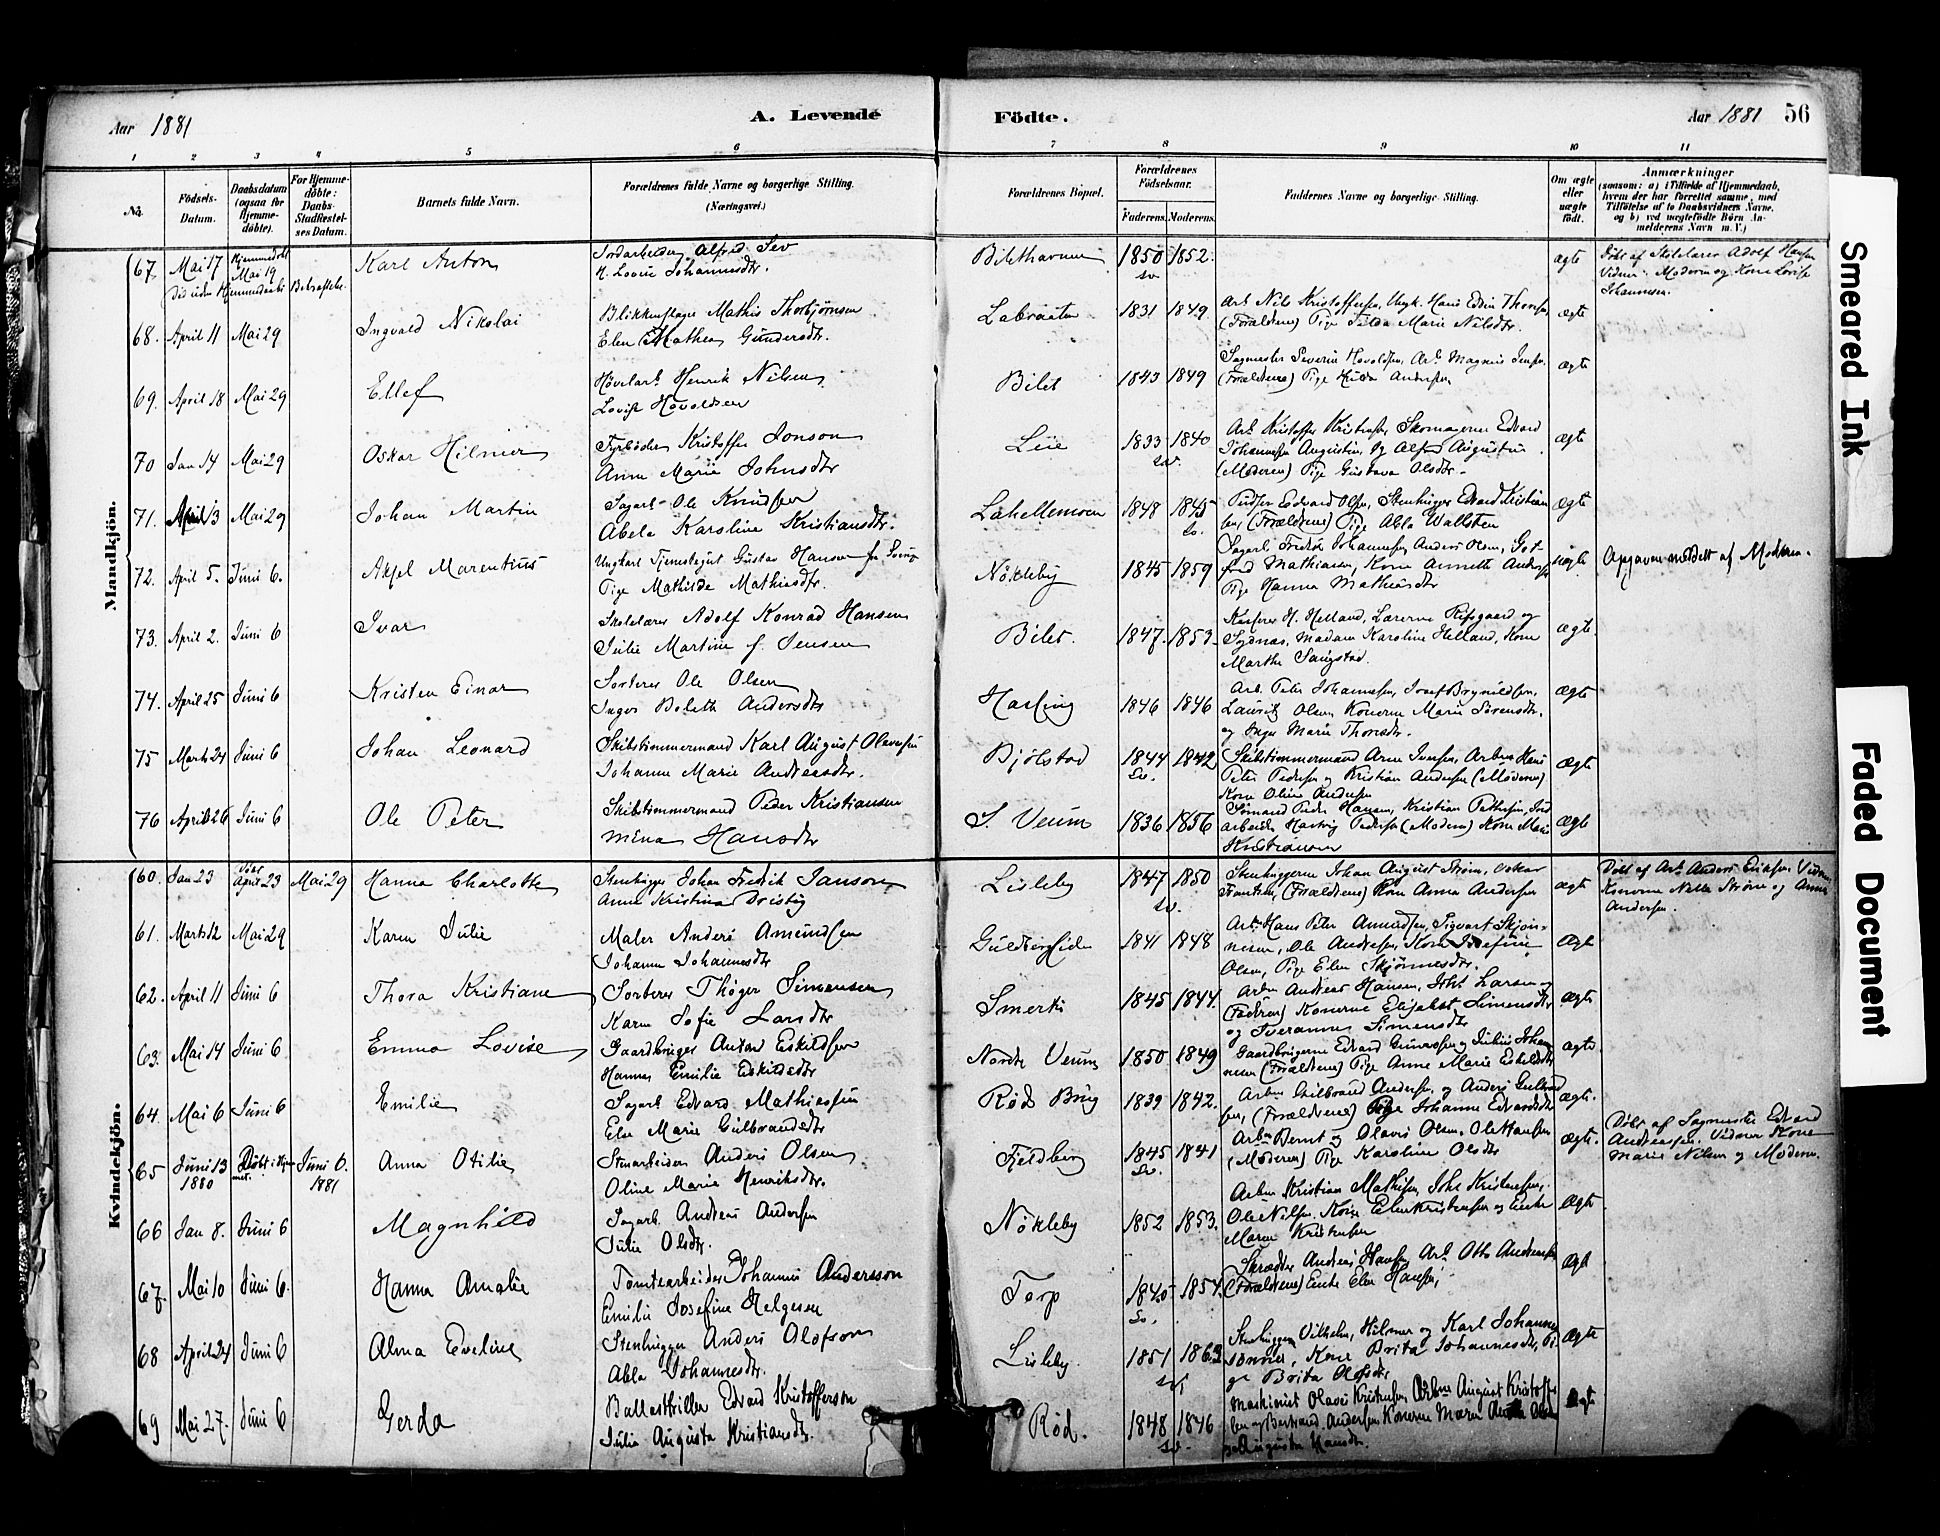 Aar 1881
A. Levende
Födte.
Aar 1881 56
1 2 3 4 5 6 7 8 9 10 11
No.
Födsels-Datum.
Daabsdatum (ogsaa for Hjemmedöbte).
For Hjemmedöbte: Daabs-Stadfæstelses Datum.
Barnets fulde Navn.
Forældrenes fulde Navne og borgerlige Stilling. (Næringsvei.)
Forældrenes Bopæl.
Forældrenes Födselsaar.
Faderens. Moderens.
Faddernes Navne og borgerlige Stilling.
Om ægte eller uægte födt.
Anmærkninger
(saasom: a) i Tilfælde af Hjemmedaab, hvem der har forrettet samme, med Tilföielse af to Daabsvidners Navne, og b) ved uægtefödte Börn Anmelderens Navn m. V.)
Mandkjön.
67. Mai 17 Hjemmedøbt Mai 19 Bekræftelse Karl Anton
Jordarbeider Alfred
H. Lovise Johannesdtr.
1850 sv. 1852. ægte
Døbt af Skolelærer Adolf Hansen
Vidner: Moderen og Kone Lovise
Johannesen.
68. April 11 Mai 29 Ingvald Nikolai
Mathis Thorbjørnsen
Elen Mathea Gundersdtr.
Labraaten 1831 1849
Arb. Nils Kristoffersen, Ungk. Hans Edvin
(Forældrene) Pige Tilda Marie Nilsdtr.
ægte
69. April 18 Mai 29 Ellef
Høvelarb. Henrik Nilsen
Lovise Havoldsen
Bilet 1843 1849
Sagmester Severin Havoldsen, Arb. Magnus Jensen,
(Forældrene) Pige Hulda Andersen
ægte
70 Jan 14 Mai 29 Oskar Hilmer
Fyrbøder Kristoffer Jonson
Anna Marie Johnsdtr
Lie 1833 sv. 1840
Arb. Kristoffer Kristensen, Skomagerne Edvard
Johannesen Augustin, og Alfred Augustin.
(Moderen) Pige Gustava Olsdtr.
ægte
71. April 3 Mai 29 Johan Martin
Sagarb. Ole Knudsen
Abela Karoline Kristiansdtr.
Lahellemoen 1848 1845 sv.
Edvard Olsen, Stenhugger Edvard Kristiansen,
(Forældrene) Pige Abla Wallsten
ægte
72. April 5. Juni 6. Axel Marentius
Ungkarl Tjenestegut Gustav Hansen fra Sverige
Pige Mathilde Mathisdtr.
Nøkleby 1845 1859
Sagarb. Fredrik Johannesen, Anders Olsen, Gotfred Mathiasen, Kone Annette Andersen
Pige Hanna Mathiasdtr
uægte. Opgaven meddelt af Moderen.
73. April 2. Juni 6 Ivar
Skolelærer Adolf Konrad Hansen
Julie Martine f. Jensen
Bilet. 1847. 1853.
H. Helland, Lærerne og
Sydnæs, Madam Karoline Helland, Kone
Marthe Saugstad.
ægte.
74. April 25 Juni 6 Kristen Einar
Sorterer Ole Olsen
Inger Boleth Andersdtr
Hasling 1846 1846
Arb. Peter Johannesen, Josef Brynildsen,
Laurits Olsen, Konerne Marie Sørensdtr.
og Inger Marie Thoresdtr.
ægte
75 Marts 24 Juni 6 Johan Leonard
Skibstimmermand Karl August Olavesen
Johanne Marie Andreasdtr.
Bjølstad 1844 sv. 1842
Skibstimmermand Arne Iversen, Arben Hans
Peter Pedersen og Kristian Andersen (Moderen)
Kone Oline Andersen
ægte
76 April 26 Juni 6 Ole Peter
Skibstimmermand Peder Kristiansen
Mina Hansdtr
S. Veum 1836 1856
Sømand Peder Hansen, Kristian Pettersen, Jordarbeider Hartvig Pedersen (Moderen) Kone Maria
Kristiansen
ægte
Kvindekjön.
60. Jan 23 Døbt April 23 Mai 29 Hanna Charlotte
Stenhugger Johan Fredrik Janson
Anna Kristina Dristig
Lisleby 1847 sv. 1850
Stenhuggerne Johan August Strøm, Oskar
Frantsen, (Forældrene) Kone Anna Andersen
ægte
Døbt af Arb. Anders Eriksen Vidner
Konerne Nille Strøm og Anna
Andersen.
61. Marts 12 Mai 29 Karen Julie
Maler Anders Amundsen
Johanne Johannesdtr
Guldbergsiden 1841 1848
Arbn. Hans Peter Amundsen, Sigvart Skjønnesen, Ole Andresen, Kone Josefine
Olsen, Pige Elen Skjønnesdtr.
Ægte
62. April 11 Juni 6 Thora Kristiane
Sorterer Thøger Simensen
Karen Sofie Larsdtr
Smerti 1845 1844.
Arben Andreas Hansen, Johs Larsen og
(Faderen) Konerne Elisabet Simensdtr
og Sveranna Simensdtr
ægte
63. Mai 14 Juni 6 Emma Lovise
Gaardbruger Anton Eskildsen
Hanna Emilie Eskildsdtr
Nordre Veum 1850 1849
Gaardbrugerne Edvard Gunnersen og Julius Johannesen (Forældrene) Pige Anne Marie Eskildsdtr
ægte
64. Mai 6 Juni 6 Emilie
Sagarb. Edvard Mathiesen
Else Marie Gulbrandsdtr
Rød Brug 1839 1842.
Arben Gulbrand Andersen og Anders Gulbrandsen, (Forældrene) Pige Johanne Edvardsdtr
ægte.
65 Juni 13 1880 Døbt i Hjemmet. Juni 6. 1881 Anna Otilie
Stenarbeider Anders Olsen
Oline Marie Henriksdtr.
Fjeldberg 1845 sv. 1841
Arbn Bernt og Olavus Olsen, Ole Hansen
(Moderen) Pige Karoline Olsdtr
ægte.
Døbt af Sagmester Edvard
Andreassen. Vidner Kone
Marie Nilsen og Moderen.
66 Jan 8. Juni 6 Magnhild
Sagarb. Andreas Andersen
Julie Olsdtr.
Nøkleby 1852 1853.
Arben Kristian Mathisen, Johs Kristensen,
Ole Nilsen, Kone Elen Kristensen og Enke
Maren Kristensen
Ægte
67. Mai 10 Juni 6. Hanna Amalie
Tomtearbeider Johannes Andersson
Emilie Josefine Helgesen
Torp 1845 sv. 1854.
Skrædder Anders Hansen, Arb. Otto Andersen
(Forældrene) Enke Elen Hansen,
Ægt
68 April 24 Juni 6 Alma Eveline
Stenhugger Anders Olofson
Abla Johannesdtr.
Lisleby. 1851 sv.
Stenhugger Vilhelm, Hilmer og Karl Johannessønner, Kone Brita Johannesdtr, Pige Brita Olofsdtr
Ægte
69 Mai 27. Juni 6 Gerda
Edvard Kristofferson
Julia Augusta Kristiansdtr.
Rød. 1848 sv. 1846
Maskinist Olaus Kristensen, Arbn August Kristoffersen og Bertrand Andersen Konerne Maren
Augusta Hansdtr.
Ægte
Smeared Ink
Faded Document